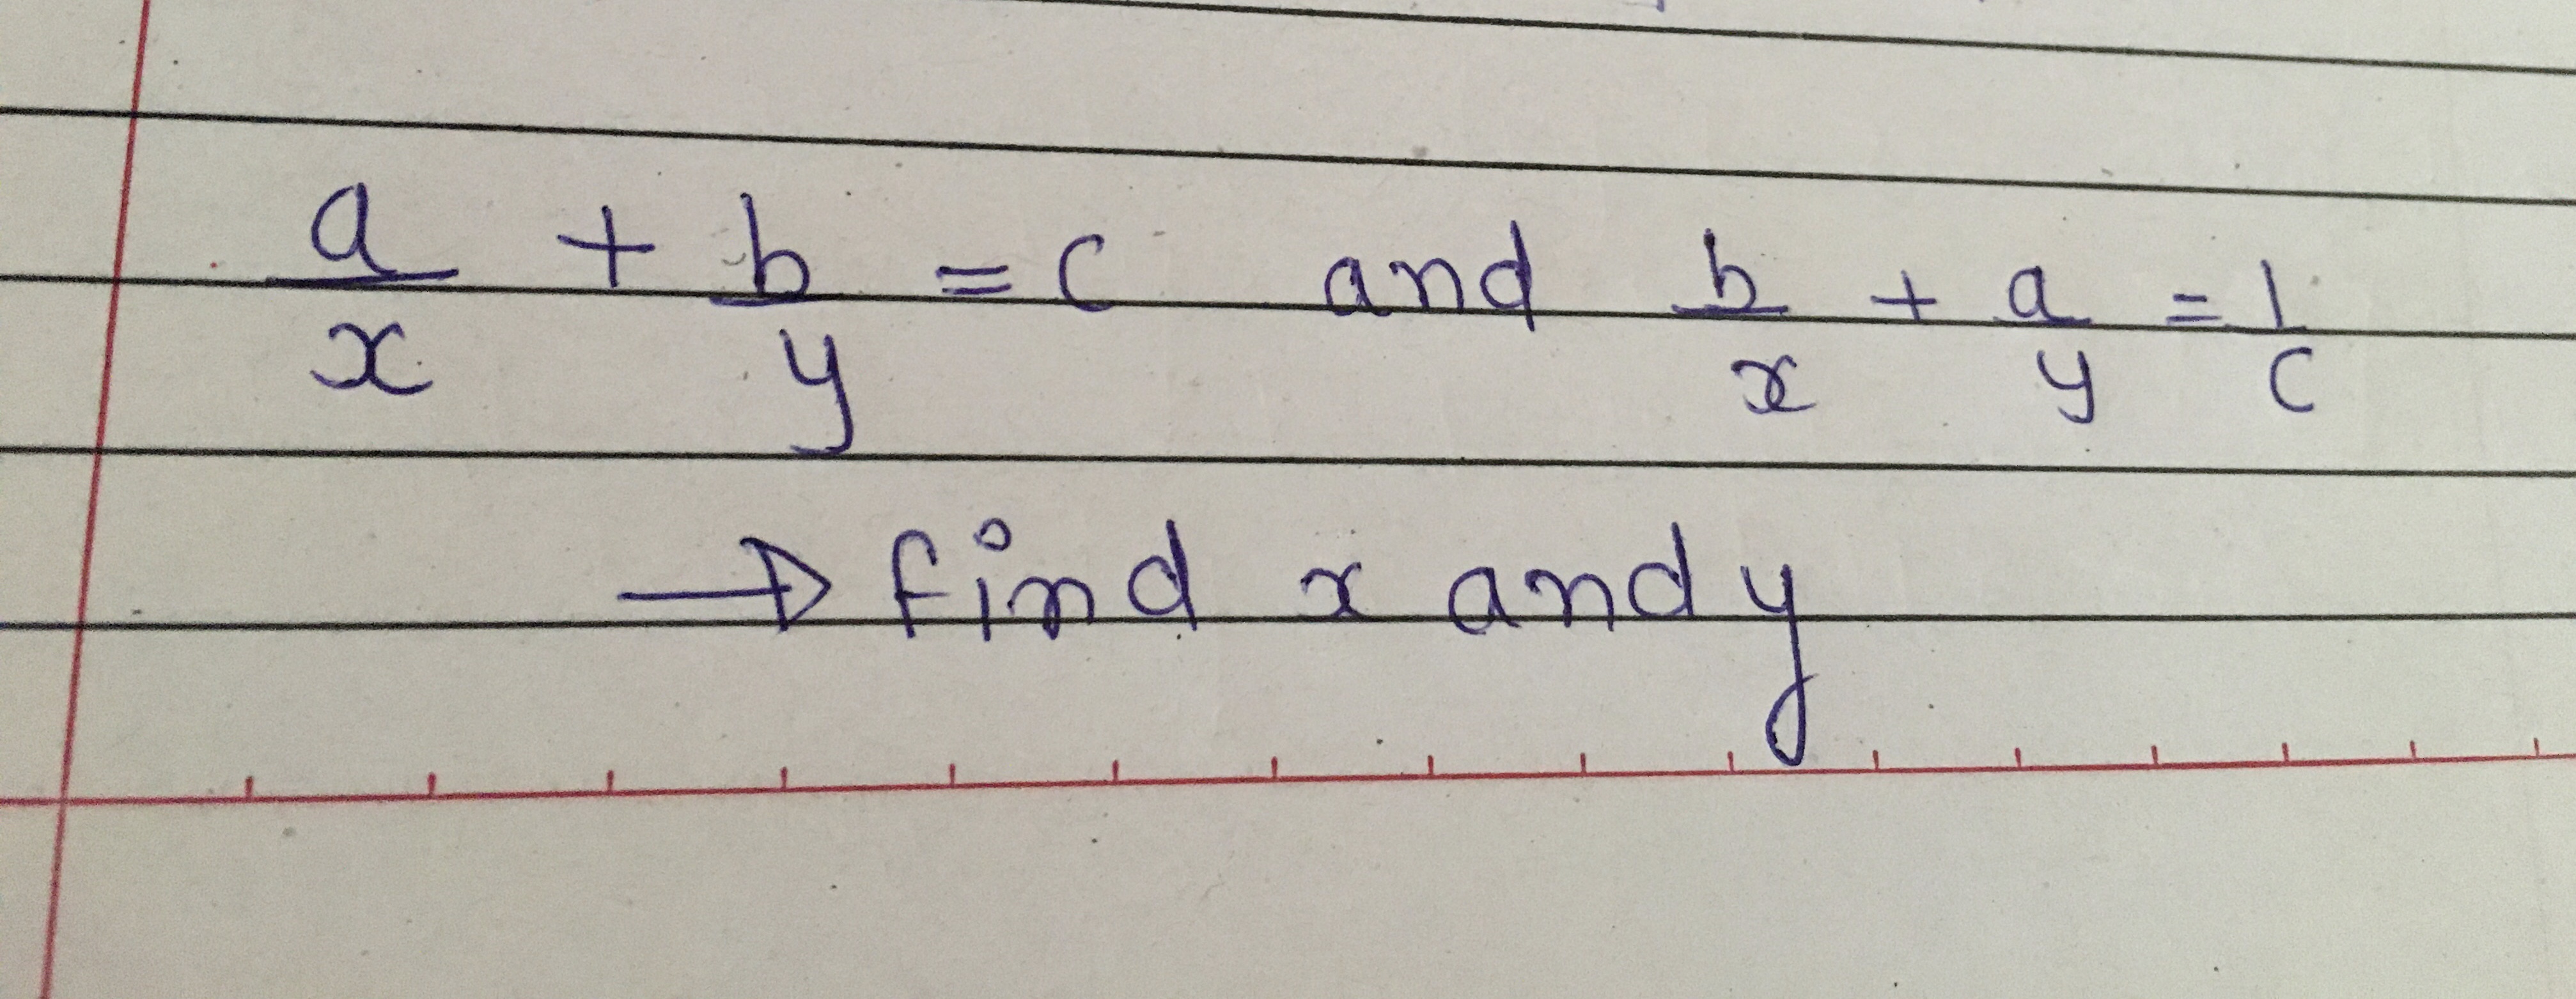 a/x + b/y = c and b/x + a/y = 1/c
→ find x and y